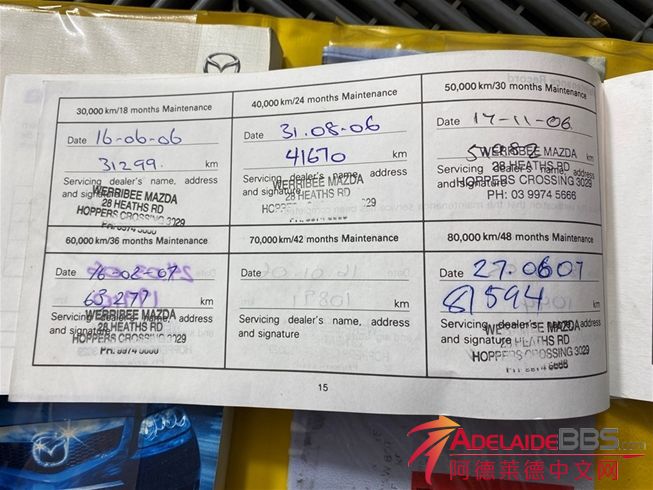 30,000 km/18 months Maintenance
Date 16-06-06
31299. km
Servicing dealer's name, address
and signature
WERRIBEE MAZDA
28 HEATHS RD
HOPPERS CROSSING 3029
40,000 km/24 months Maintenance
Date 31.08-06
41670 km
Servicing dealer's name, address
and signature
WERRIBEE MAZDA
28 HEATHS RD
50,000 km/30 months Maintenance
Date 17-11-06
km
Servicing dealer's name, address
and signature
WERRIBEE MAZDA
28 HEATHS RD
HOPPERS CROSSING 3029
PH: 03 9974 5666
60,000 km/36 months Maintenance
Date 16-02-07
63277 km
Servicing dealer's name, address
and signature
WERRIBEE MAZDA
28 HEATHS RD
HOPPERS CROSSING 3029
70,000 km/42 months Maintenance
Date
km
Servicing dealer's name, address
and signature
80,000 km/48 months Maintenance
Date 27.0607
81594 km
Servicing dealer's name, address
and signature
MAZDA
HOPPERS CROSSING 3029
15
ADELAIDEBBS.com
阿德莱德中文网